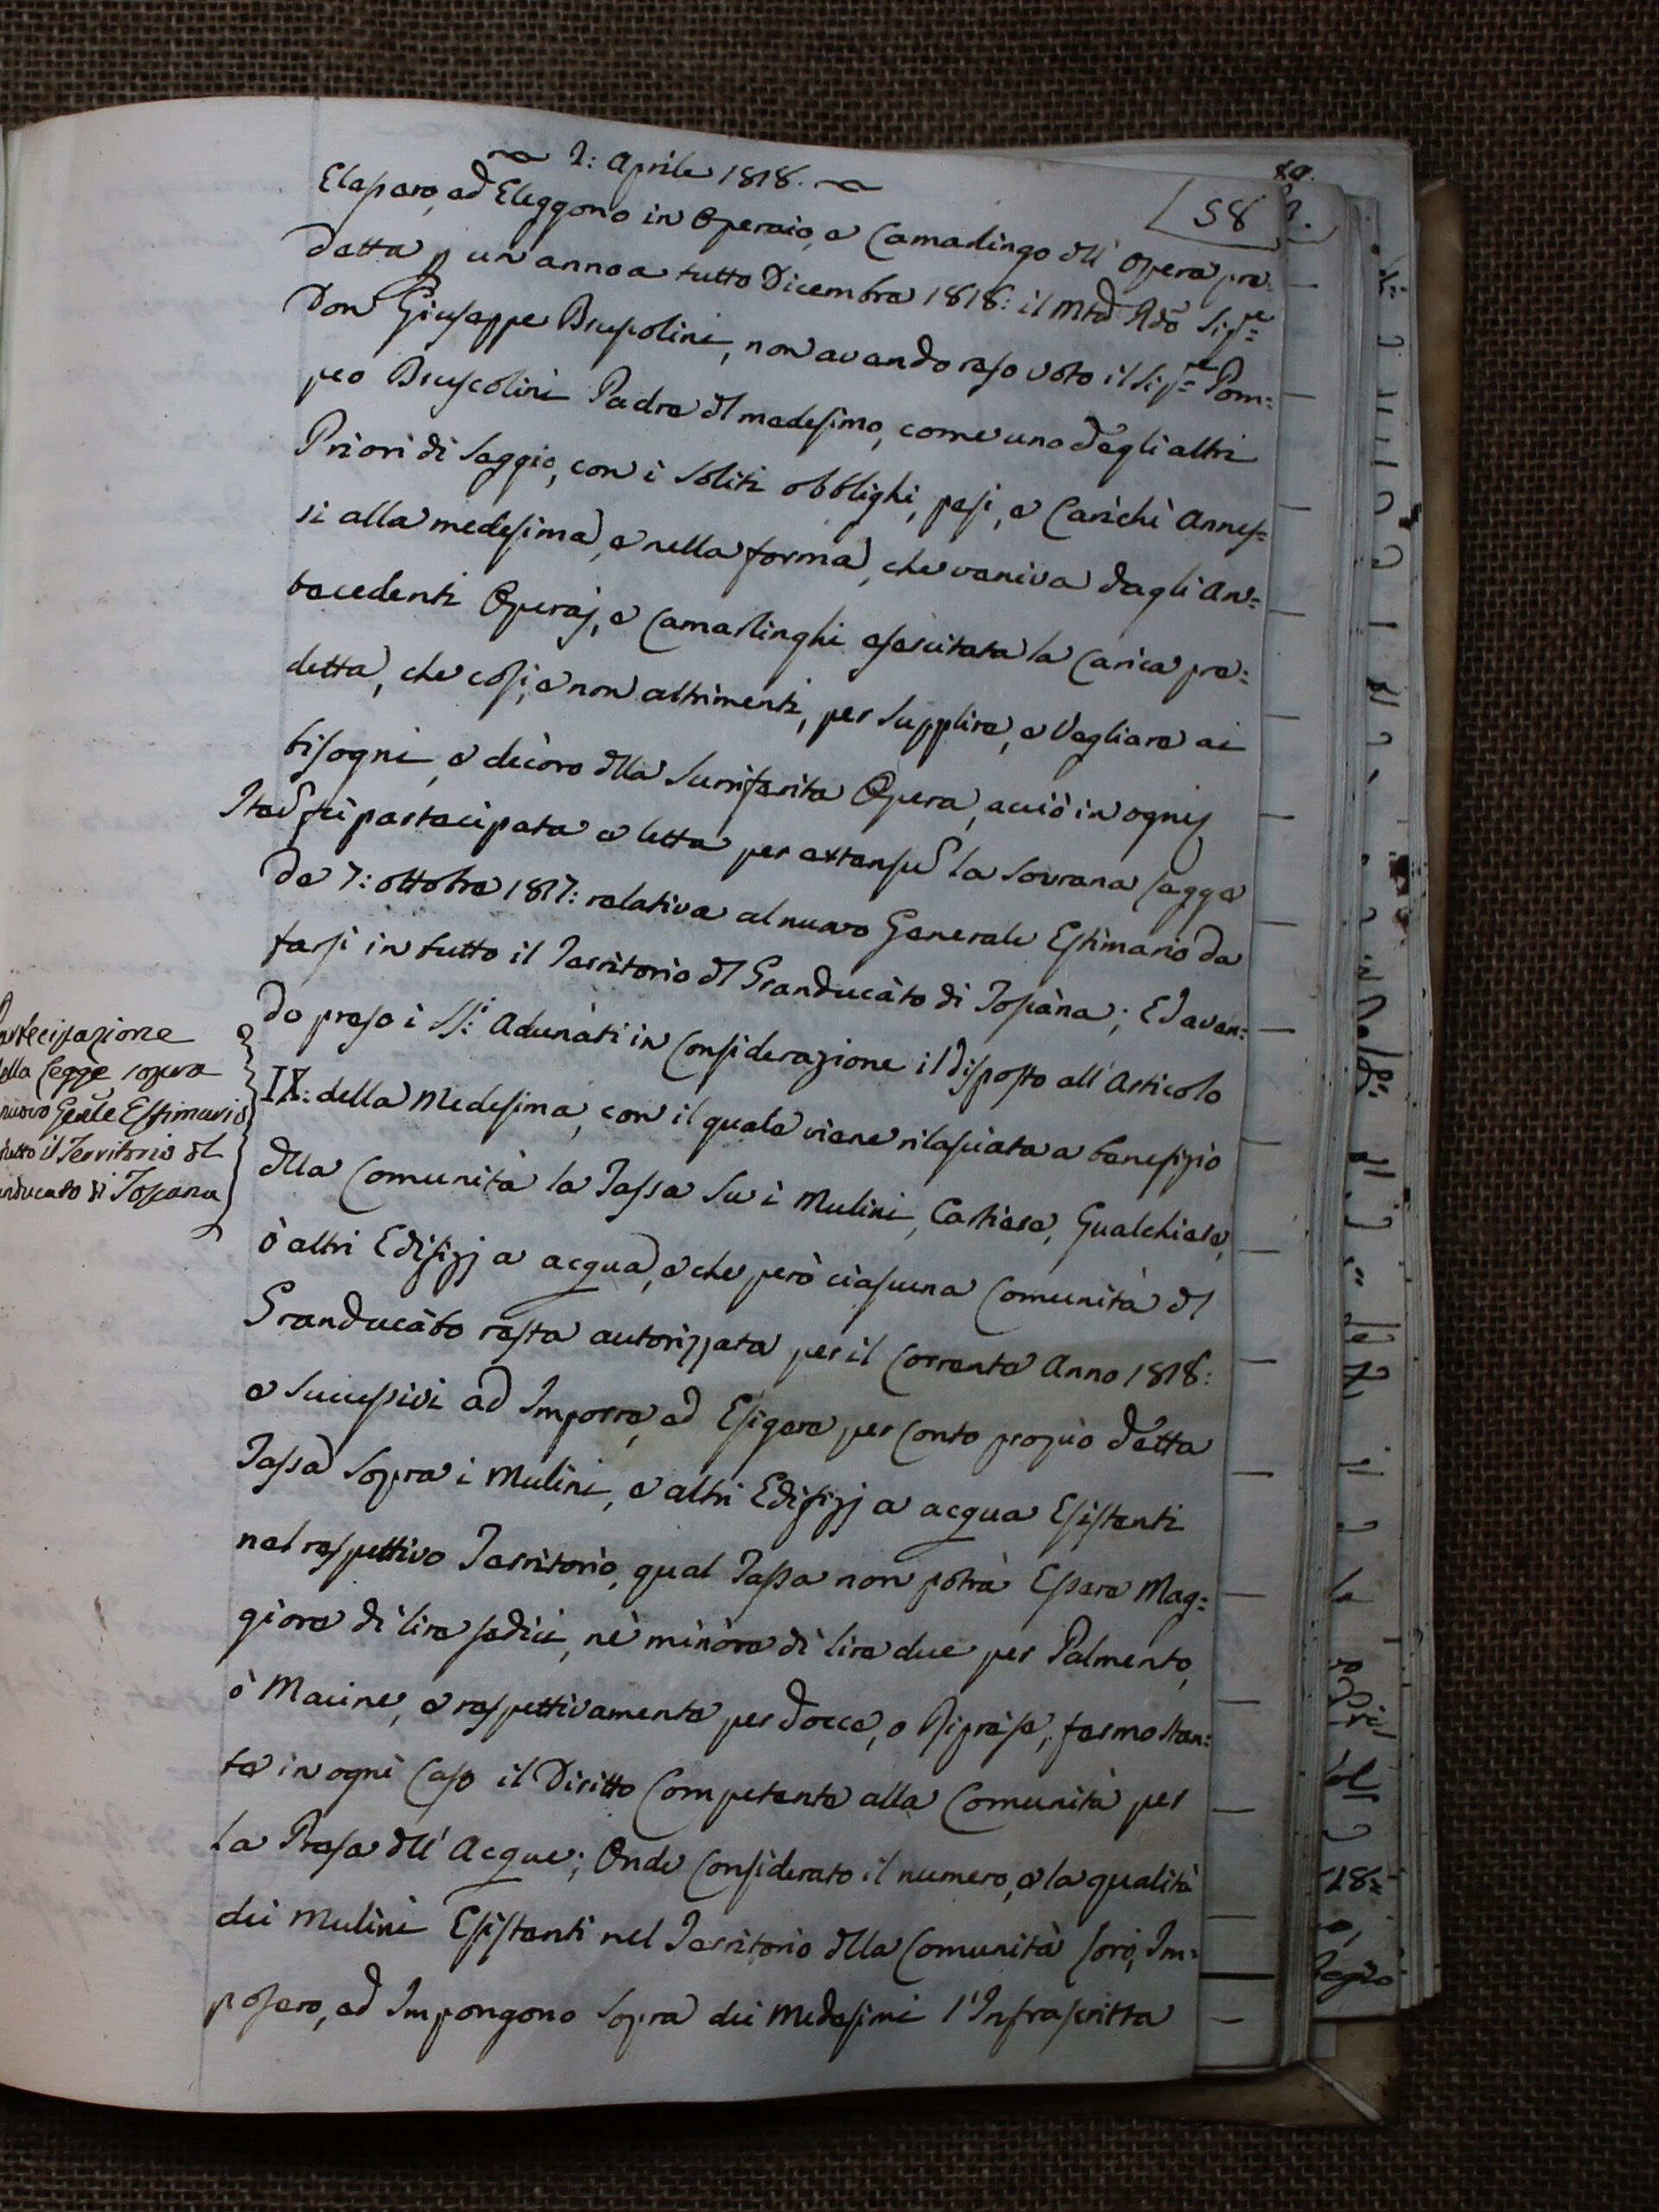 2: Aprile 1818.
58
Elessero, ed Eleggono in Operaio, e Camarlingo dll' Opera pre=
detta p un anno a tutto Dicembre 1818: il Mtō Rdō Sig.re
Don Giuseppe Bruscolini, non avendo reso voto il Sig.re Pom=
peo Bruscolini Padre dl medesimo, come uno degli altri
Priori di Seggio, con i soliti obblighi, pesi, e Carichi Annes=
si alla medesima, e nella forma, che veniva dagli An=
tecedenti Operaj, e Camarlinghi esercitata la Carica pre=
detta, che così, e non altrimenti, per supplire, e Vegliare ai
bisogni, e decoro dlla surriferita Opera, acciò in ogni
Item fù partecipata e letta per extensum la Sovrana Legge
de 7: ottobre 1817: relativa al nuovo Generale Estimario da
farsi in tutto il Territorio dl Granducàto di Toscàna; Ed aven=
do preso i SS.ri Adunàti in Considerazione il disposto all' Articolo
IX: della Medesima, con il quale viene rilasciata a benefizio
dlla Comunità la Tassa su i Mulini, Cartiere, Gualchiere,
ò altri Edifizj a acqua, e che però ciascuna Comunità dl
Granducàto resta autorizzata per il Corrente Anno 1818:
e successivi ad Imporre, ed Esigere per Conto proprio detta
Tassa sopra i Mulini, e altri Edifizj a acqua Esistenti
nel respettivo Territorio, qual Tassa non potrà Essere Mag=
giore di lire sedici, nè minore di lire due per Palmento,
ò Macine, e respettivamente per Docce, o Riprese, fermo stan=
te in ogni Caso il Diritto Competente alla Comunità per
la Presa dll' Acque; Onde Considerato il numero, e la qualità
dei Mulini Esistenti nel Territorio dlla Comunità loro, Im=
posero, ed Impongono sopra dei Medesimi l'Infrascritta
Partecipazione
della Legge sopra
nuovo Genle Estimario
tutto il Territorio dl
Granducato di Toscana